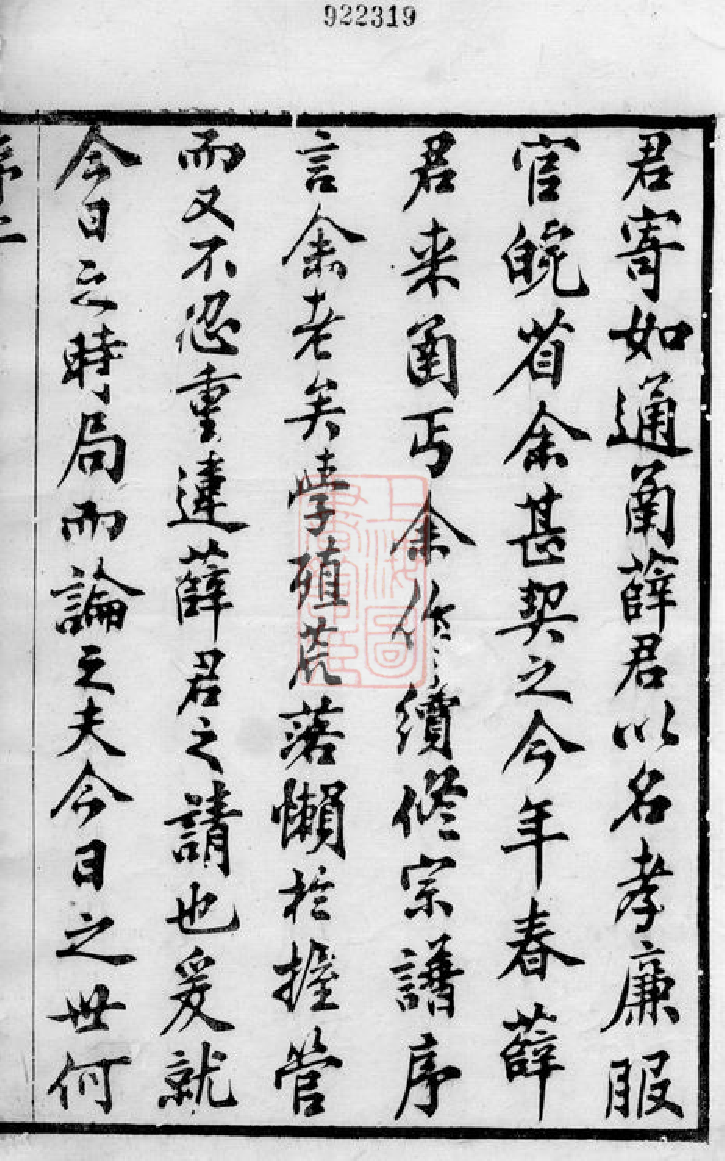 922319
君寄如通甬薛君以名孝廉服
官皖省余甚契之今年春薛
君来甬丐余作續修宗譜序
言余老矣學殖荒落懶於握管
而又不忍重違薛君之請也爰就
今日之時局而論之夫今日之世何
序二
上海圖